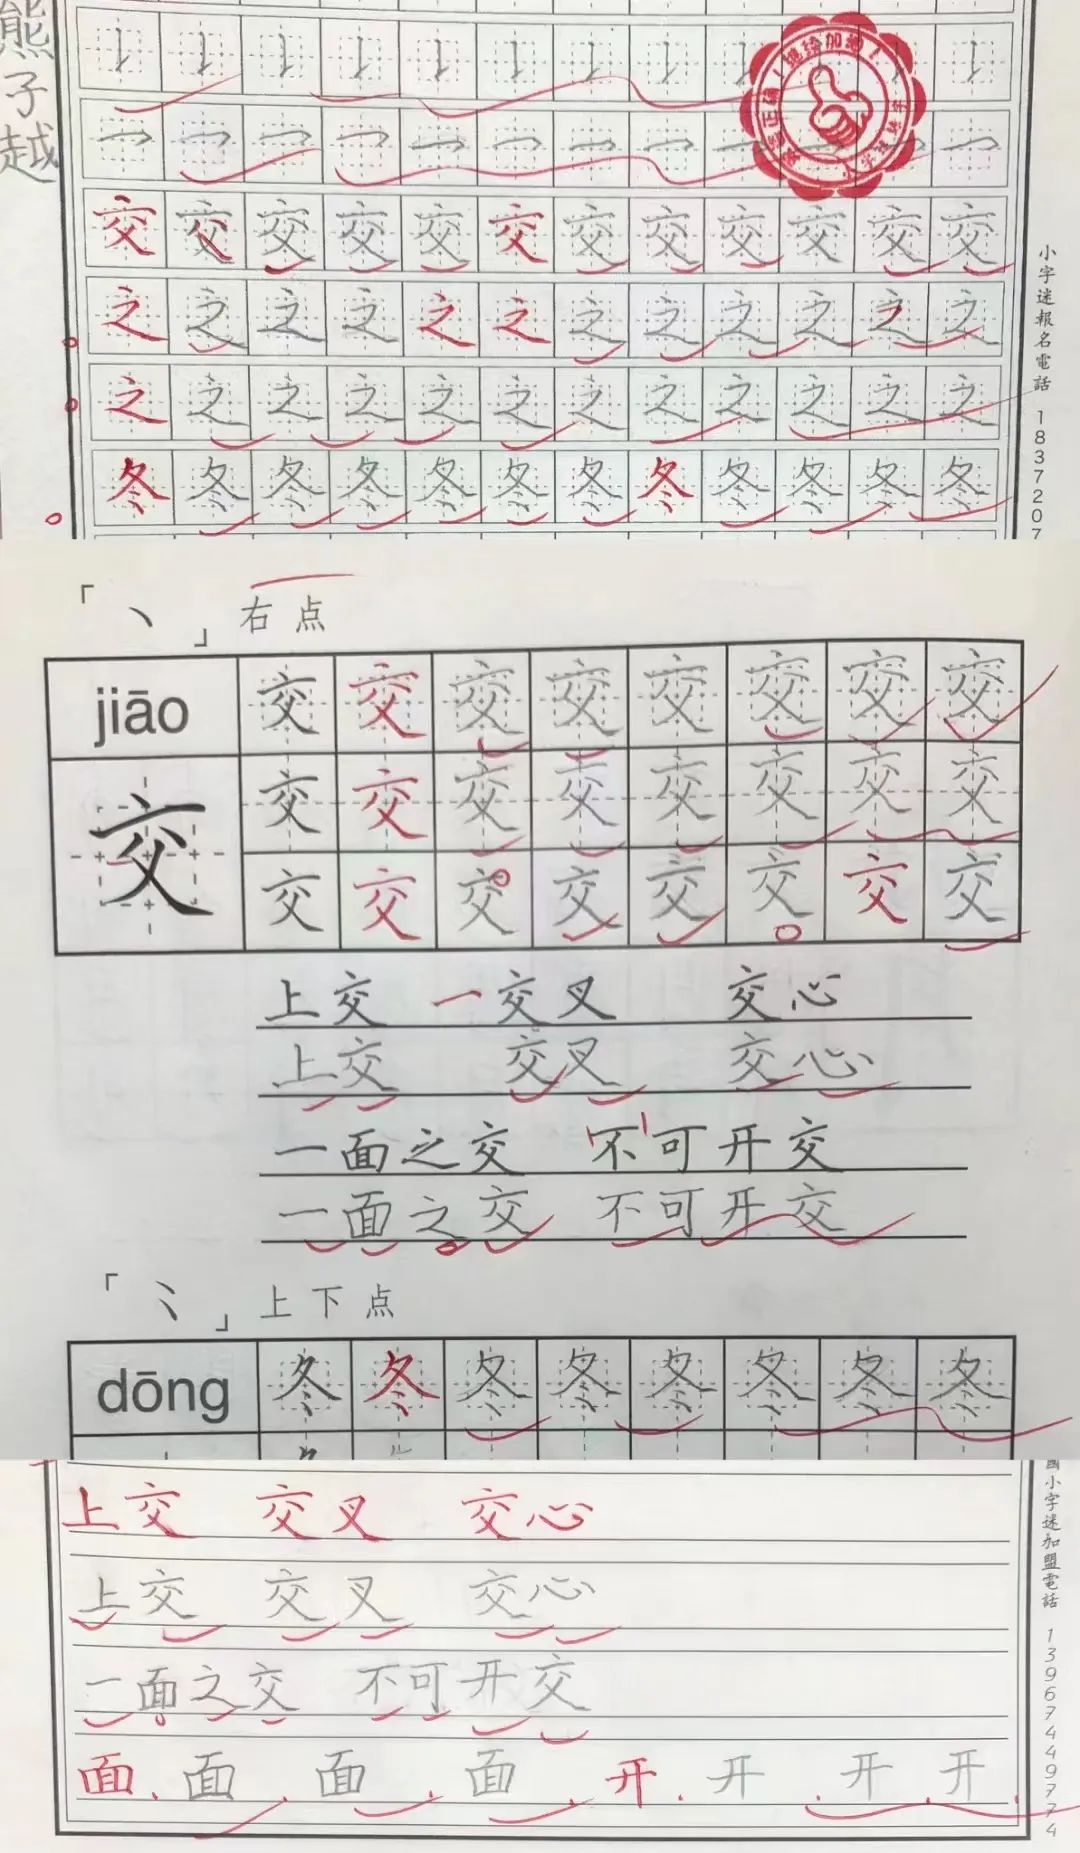 熊子越
交交交交交交交交交交交交
之之之之之之之之之之之之
之之之之之之之之之之之之
冬冬冬冬冬冬冬冬冬冬冬冬
小字迷報名電話 1837207
「丶」右点
jiāo 交交交交交交交交
交 交交交交交交交交
交交交交交交交交
上交 一交叉 交心
上交 交叉 交心
一面之交 不可开交
一面之交 不可开交
「⺀」上下点
dōng 冬冬冬冬冬冬冬冬
上交 交叉 交心
上交 交叉 交心
一面之交 不可开交
面 面 面 面 开 开 开 开
國小字迷加盟電話 13967449774